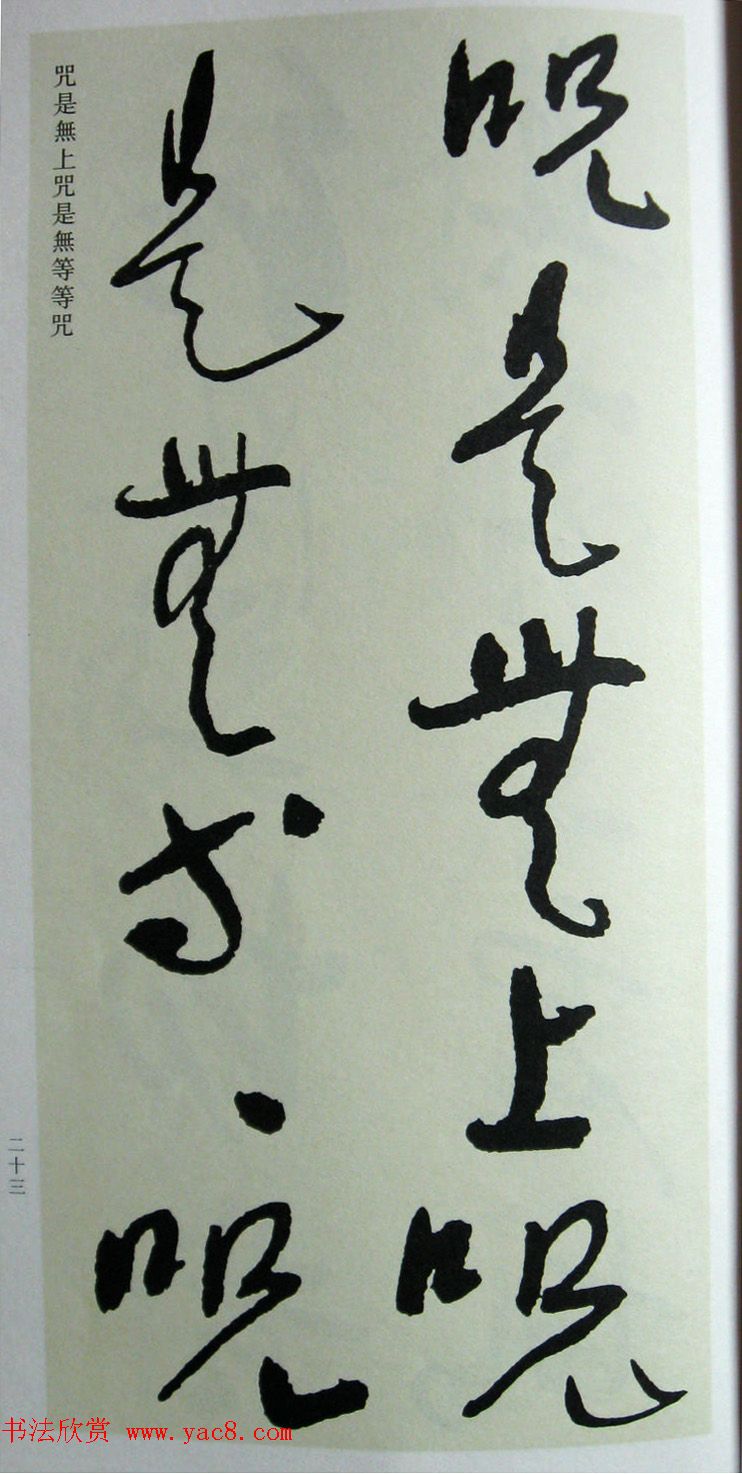 呪是無上呪
是無等〻呪
咒是無上咒是無等等咒
二十三
书法欣赏 www.yac8.com